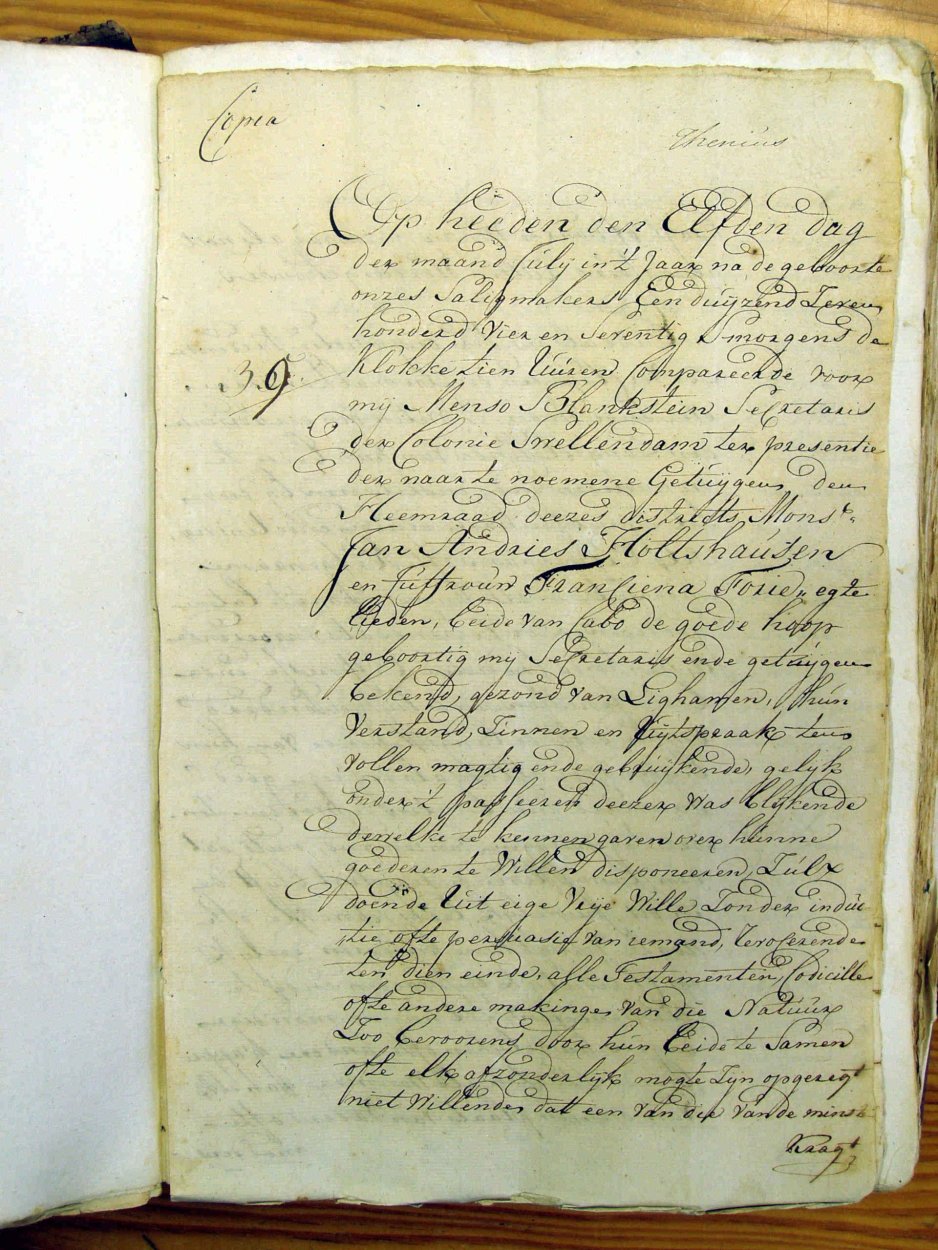 Copia
Thenius
Op heeden den Elfden dag
der maand Julij in't Jaar na de geboorte
onzes Saligmakers Een duijzend Zeven
honderd Vier en Seventig Smorgens de
Klokke tien Uuren Compareerde voor
39.
mij Menso Blankstein Secretaris
der Colonie Swellendam ter presentie
der naar te noemene Getuijgen den
Heemraad deezes districts, Monsr.
Jan Andries Holtshausen
en Juffrouw Franciena Forie,, egte
lieden, beide van Cabo de goede hoop
geboortig mij Secretaris ende getuijgen
bekend, gezond van Lighamen, hun
Verstand, Zinnen en Uijtspraak ten
vollen magtig ende gebruijkende, gelijk
onder't passeeren deezer was blijkende
dewelke te kennen gaven over hunne
goederen te Willen disponeeren, Zulx
doende Uit eige Vrije Wille Zonder induc-
tie ofte persuasie van iemand, revocerende
ten dien einde, alle Testamenten, Codicille
ofte andere makinge van die Natuur
Zoo bevoorens door hun beide te Samen
ofte elk afzonderlijk mogte Zijn opgeregt
niet Willende dat een van die van de minste
Kragt